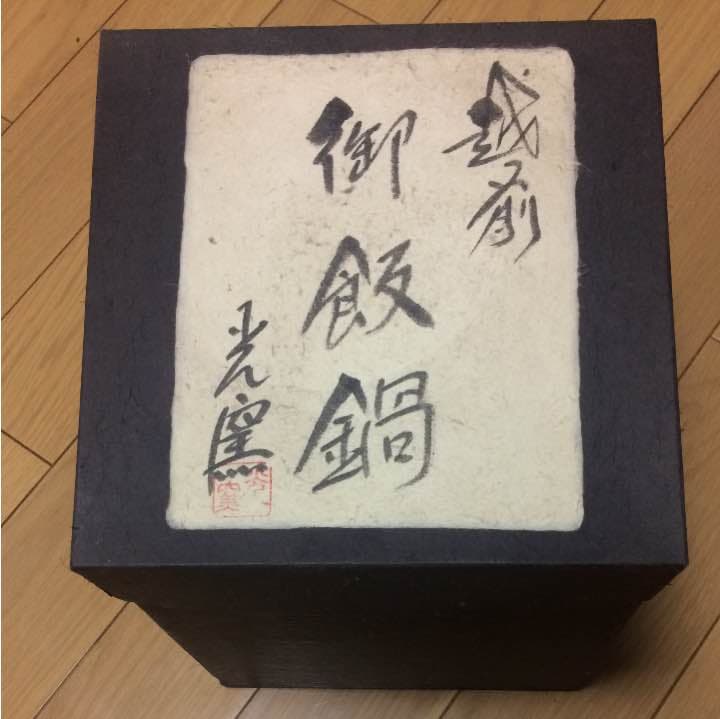 越前
御飯鍋
光窯